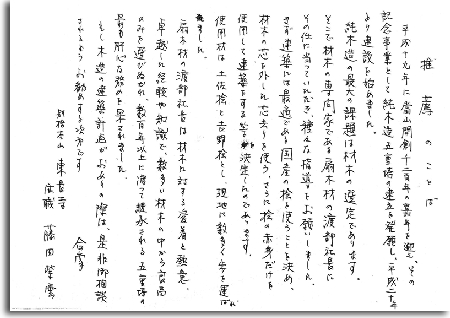 推薦のことば
平成十九年に當山開創千二百年の嘉年を迎え、その
記念事業として純木造五重塔の建立を発願し、平成二十年
より建設を始めました。
純木造の最大の課題は材木の選定であります。
そこで材木の専門家である扇木材の渡部社長に
その任に当っていただき種々な指導をお願いしました。
まず建築には最適である国産の桧を使うことを決め、
材木の芯を外した芯去りを使う、さらに桧の赤身だけを
使用して建築する等が決定したのであります。
使用材は土佐桧と吉野桧とし、現地に数多く歩を運ばれ
ました。
扇木材の渡部社長は材木に対する愛着と熱意、
卓越した経験や知識で、数多い材木の中から良品
のみを選びぬかれ、数百年以上に渡って継承される五重塔の
最も肝心な務めを果されました。
もし木造の建築計画がおありの際は、是非御相談
されるようお勧めする次第です。
合掌
東長寺
住職 藤田紫雲